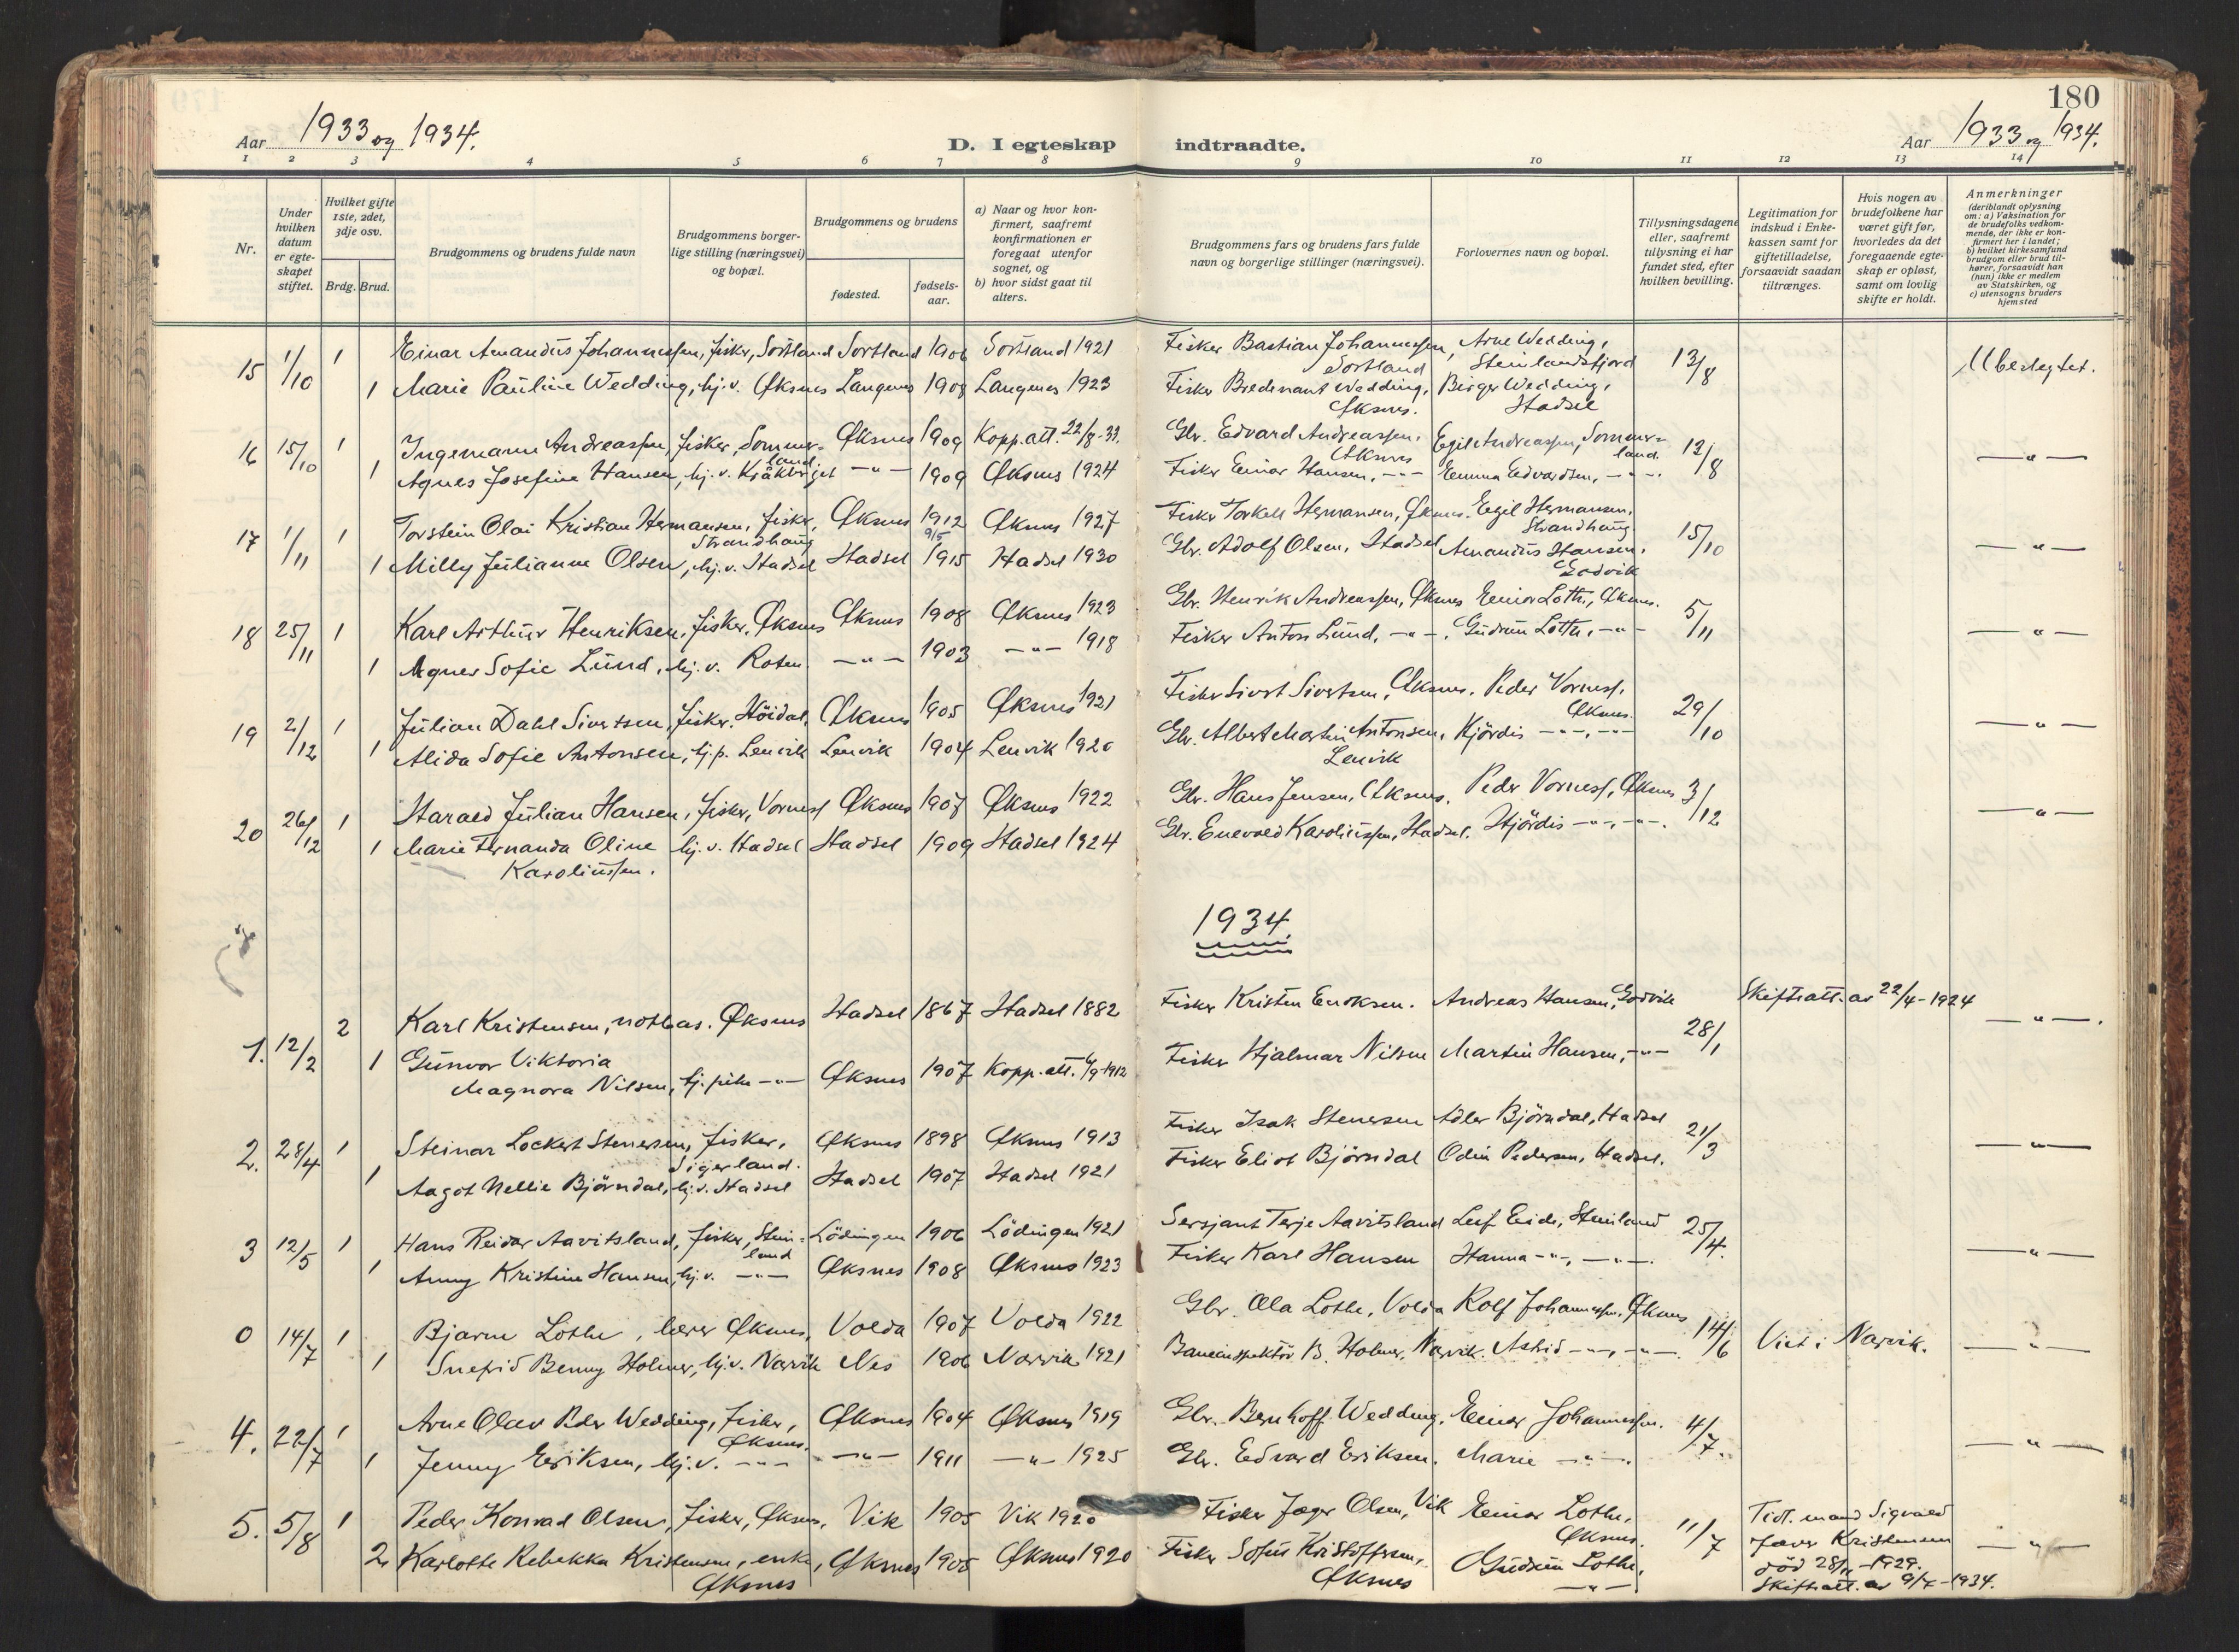 180
Aar 1933 og 1934.
D. I egteskap indtraadte.
Aar 1933 og 1934.
1 2 3 4 5 6 7 8 9 10 11 12 13 14
Nr.
Under hvilken datum er egteskapet stiftet.
Hvilket gifte 1ste, 2det, 3dje osv.
Brdg. Brud.
Brudgommens og brudens fulde navn
Brudgommens borgerlige stilling (næringsvei) og bopæl.
Brudgommens og brudens
fødested.
fødselsaar.
a) Naar og hvor konfirmert, saafremt konfirmationen er foregaat utenfor sognet, og
b) hvor sidst gaat til alters.
Brudgommens fars og brudens fars fulde navn og borgerlige stillinger (næringsvei).
Forlovernes navn og bopæl.
Tillysningsdagene eller, saafremt tillysning ei har fundet sted, efter hvilken bevilling.
Legitimation for indskud i Enkekassen samt for giftetilladelse, forsaavidt saadan tiltrænges.
Hvis nogen av brudefolkene har været gift før, hvorledes da det foregaaende egteskap er opløst, samt om lovlig skifte er holdt.
Anmerkninger
(deriblandt oplysning om: a) Vaksination for de brudefolks vedkommende, der ikke er konfirmert her i landet; b) hvilket kirkesamfund brudgom eller brud tilhører, forsaavidt han (hun) ikke er medlem av Statskirken, og c) utensogns bruders hjemsted
15 1/10 1 Einar Amandus Johannessen, fisker, Sortland Sortland 1906 Sortland 1921 Fisker Bastian Johannessen, Sortland Arne Wedding, Steinlandsfjord 13/8 Ubeslegtet.
1 Marie Pauline Wedding, hj.v. Øksnes Langenes 1908 Langenes 1923 Fisker Bredenant Wedding, Øksnes. Birger Wedding, Hadsel
16 15/10 1 Ingemann Andreassen, fisker, Sommerland Øksnes 1909 Kopp.att. 22/8-33. Gbr. Edvard Andreassen, Øksnes Egil Andreassen, Sommerland. 12/8 —"—
1 Agnes Josefine Hansen, hj.v. Kråkberget —"— 1909 Øksnes 1924 Fisker Einar Hansen, —"— Emma Edvardsen, —"—.
17 1/11 1 Torstein Olai Kristian Hermansen, fisker, Strandhaug Øksnes 1912 Øksnes 1927 Fisker Torkell Hermansen, Øksnes. Egil Hermansen, Strandhaug 15/10 —"—
1 Milly Julianne Olsen, hj.v. Hadsel Hadsel 9/5 1915 Hadsel 1930 Gbr. Adolf Olsen, Hadsel Amandus Hansen, Godvik
18 25/11 1 Karl Arthur Henriksen, fisker, Øksnes Øksnes 1908 Øksnes 1923 Gbr. Henrik Andreassen, Øksnes Einar Lothe, Øksnes. 5/11 —"—
1 Agnes Sofie Lund, hj.v. Roten. —"— 1903 —"— 1918 Fisker Anton Lund, —"—. Gudrun Lothe, —"—
19 2/12 1 Julian Dahl Sivertsen, fisker, Höidal, Øksnes 1905 Øksnes 1921 Fisker Sivert Sivertsen, Øksnes. Peder Vorness, Øksnes. 29/10 —"—
1 Alida Sofie Antonsen, hj.p. Lenvik Lenvik 1904 Lenvik 1920 Gbr. Albert Martin Antonsen, Lenvik Hjördis —"—, —"—
20 26/12 1 Harald Julian Hansen, fisker, Vorness Øksnes 1907 Øksnes 1922 Gbr. Hans Jensen, Øksnes. Peder Vorness, Øksnes 3/12 —"—
1 Marie Fernanda Oline Karoliussen. hj.v. Hadsel Hadsel 1909 Hadsel 1924 Gbr. Enevold Karoliussen, Hadsel. Hjördis —"—, —"—.
1934.
1. 12/2 2 Karl Kristensen, notbas. Øksnes Hadsel 1867 Hadsel 1882 Fisker Kristen Enoksen. Andreas Hansen, Godvik 28/1 Skifteatt. av 22/4-1924 —"—.
1 Gunvor Viktoria Magnora Nilsen, hj.pike —"— Øksnes 1907 Kopp.att. 6/9-1912 Fisker Hjalmar Nilsen Martin Hansen, —"—
2. 28/4 1 Steinar Lockert Stenersen, fisker, Sigerland. Øksnes 1898 Øksnes 1913 Fisker Isak Stenersen Adler Björndal, Hadsel 21/3 —"—
1 Aagot Nellie Björndal, hj.v. Hadsel Hadsel 1907 Hadsel 1921 Fisker Eliot Björndal Odin Pedersen, Hadsel.
3 12/5 1 Hans Reidar Aavitsland, fisker, Steinland Lödingen 1906 Lödingen 1921 Sersjant Terje Aavitsland Leif Eide, Steinland 25/4. —"—
1 Anny Kristine Hansen, hj.v. —"— Øksnes 1908 Øksnes 1923 Fisker Karl Hansen Hanna —"—, —"—.
0 14/7 1 Bjarne Lothe, lærer Øksnes, Volda 1907 Volda 1922 Gbr. Ola Lothe, Volda Rolf Johannessen, Øksnes 14/6 Viet i Narvik. —"—
1 Snefrid Benny Holmer, hj.v. Narvik Nes 1906 Narvik 1921 Baneinspektör B. Holmer, Narvik. Astrid —"—, —"—.
4. 22/7 1 Arne Olav Peder Wedding, fisker, Øksnes. Øksnes 1904 Øksnes 1919 Gbr. Bernhoff Wedding. Einar Johannessen. 4/7. —"—
1 Jenny Eriksen, hj.v. —"— —"— 1911 —"— 1925 Gbr. Edvard Eriksen. Marie —"—.
5. 5/8 1 Peder Konrad Olsen, fisker, Øksnes, Vik 1905 Vik 1920 Fisker Jæger Olsen, Vik Einar Lothe, Øksnes. 11/7 Tidl. mand Sigvald Javer Kristensen död 28/11-1929. Skifteatt. av 9/7-1934. —"—
2 Karlotte Rebekka Kristensen, enke, Øksnes Øksnes 1905 Øksnes 1920 Fisker Sofus Kristoffersen, Øksnes Gudrun Lothe, —"—